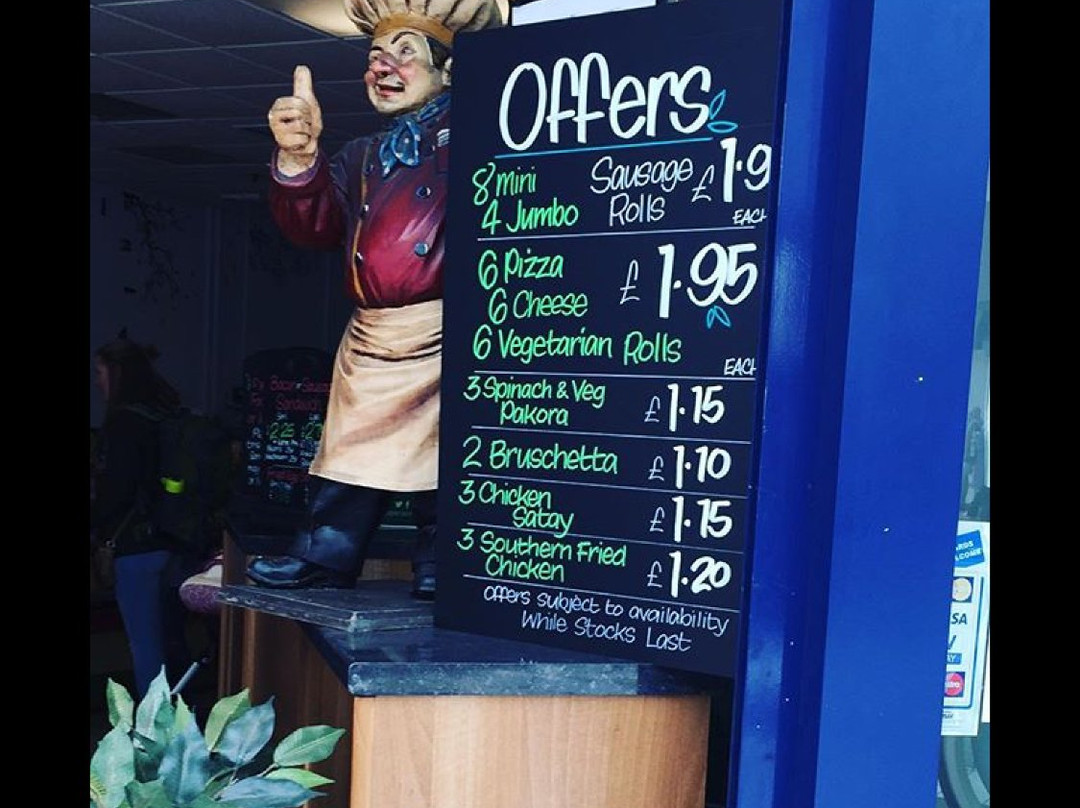 Offers
8 Mini Sausage £1.9
4 Jumbo Rolls
EACH
6 Pizza
£1.95
6 Cheese
6 Vegetarian Rolls
EACH
3 Spinach & Veg
Pakora £1.15
2 Bruschetta £1.10
3 Chicken
Satay £1.15
3 Southern Fried
Chicken £1.20
offers subject to availability
While Stocks Last
Sandwich
2.25